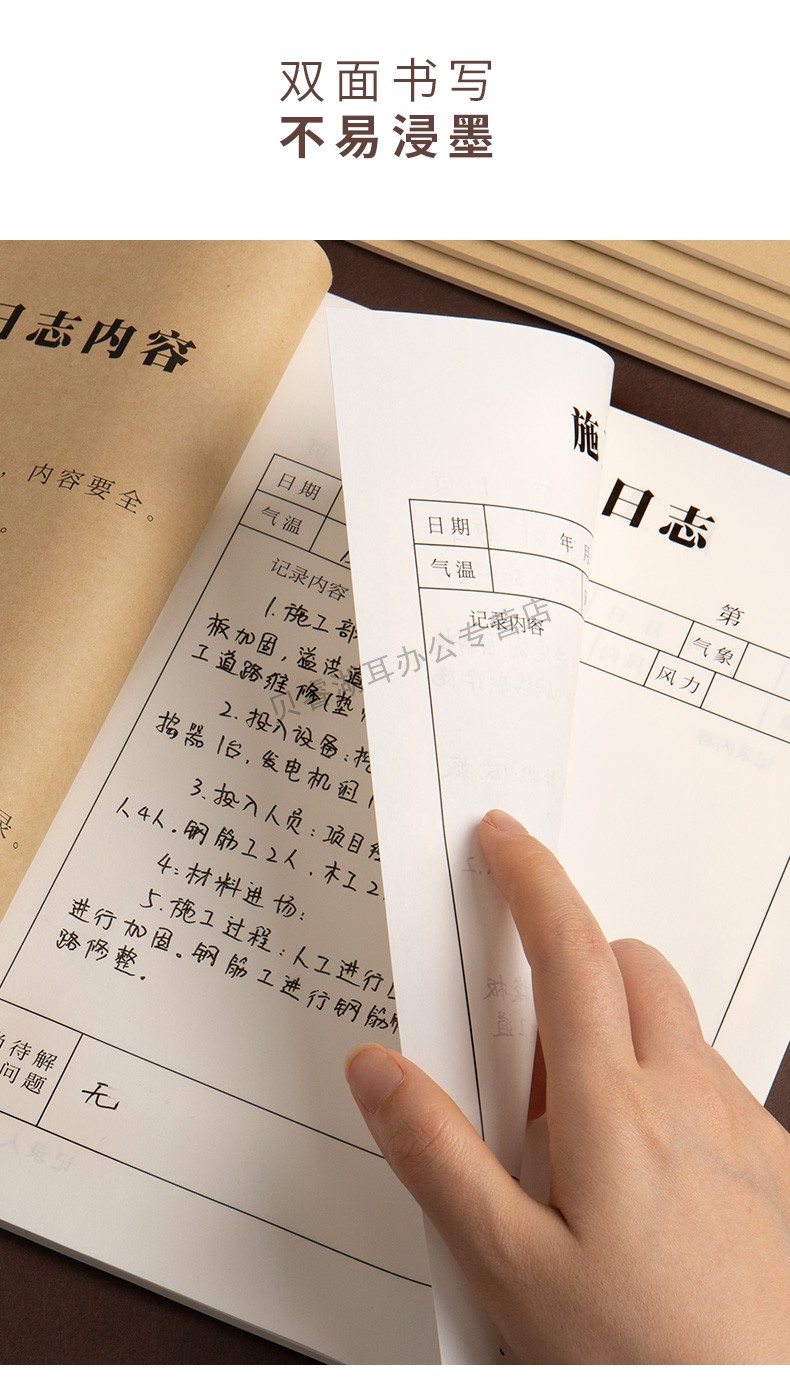 双面书写
不易浸墨
日志内容
，内容要全。
。
录。
日期
气温
记录内容
1.施工部
板加固，溢洪道
工道路维修（垫
2.投入设备：挖
捣器1台，发电机组1
3.投入人员：项目经
人4人．钢筋工2人．木工2
4：材料进场：
5.施工过程：人工进行
进行加固。钢筋工进行钢筋
路修整。
待解
问题
无
记录人
施
日期
年 月
气温
记录内容
日志
第
气象
风力
记录内容
贝睿湖耳办公专营店